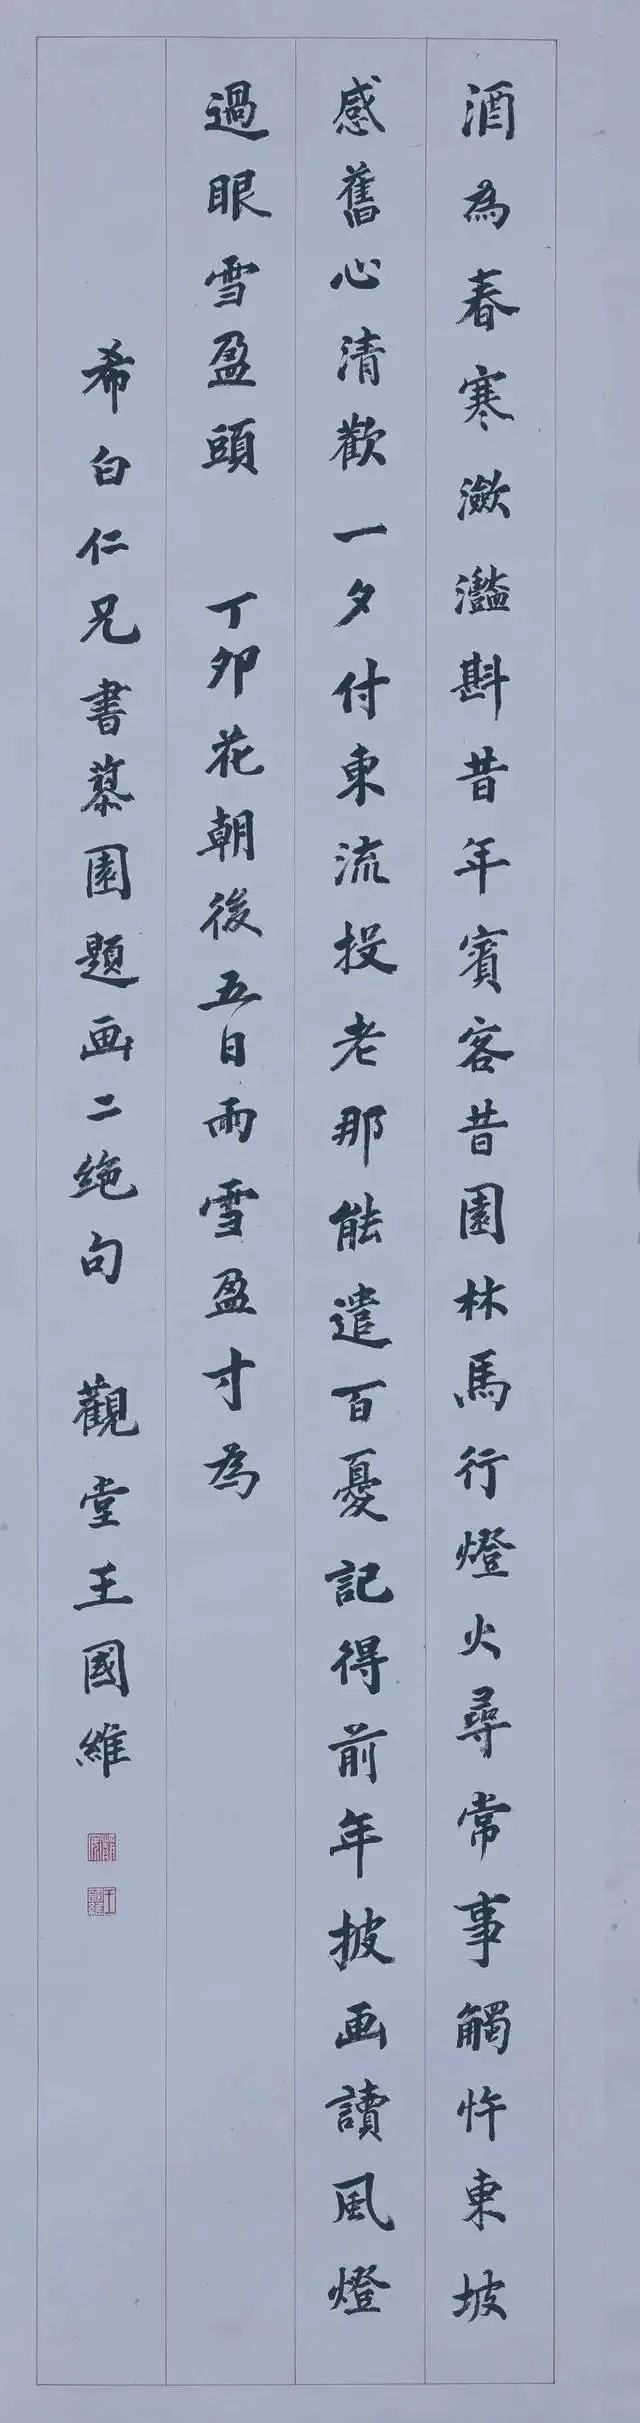 酒為春寒瀲灩斟昔年賓客昔園林馬行燈火尋常事觸忤東坡
感舊心清歡一夕付東流投老那能遣百憂記得前年披画讀風燈
過眼雪盈頭 丁卯花朝後五日雨雪盈寸為
希白仁兄書慕園題画二絶句 觀堂王國維
王國維